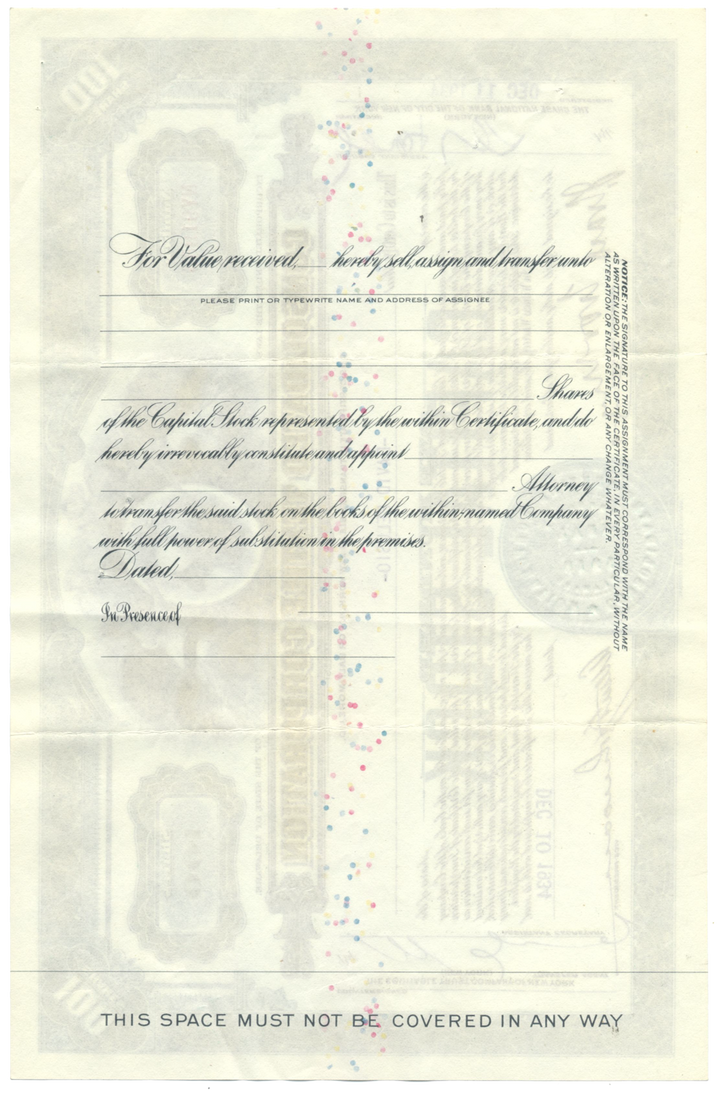 For Value received, ____ hereby sell, assign and transfer unto
PLEASE PRINT OR TYPEWRITE NAME AND ADDRESS OF ASSIGNEE
Shares
of the Capital Stock represented by the within Certificate, and do
hereby irrevocably constitute and appoint
Attorney
to transfer the said stock on the books of the within-named Company
with full power of substitution in the premises.
Dated,
In Presence of
NOTICE: THE SIGNATURE TO THIS ASSIGNMENT MUST CORRESPOND WITH THE NAME
AS WRITTEN UPON THE FACE OF THE CERTIFICATE, IN EVERY PARTICULAR, WITHOUT
ALTERATION OR ENLARGEMENT, OR ANY CHANGE WHATEVER.
DEC 10 1934
THIS SPACE MUST NOT BE COVERED IN ANY WAY